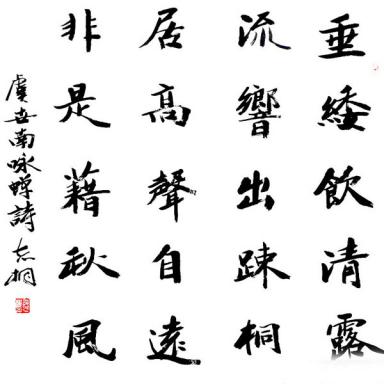 垂緌飲清露
流響出踈桐
居高聲自遠
非是藉秋風
虞世南咏蟬詩 志桐